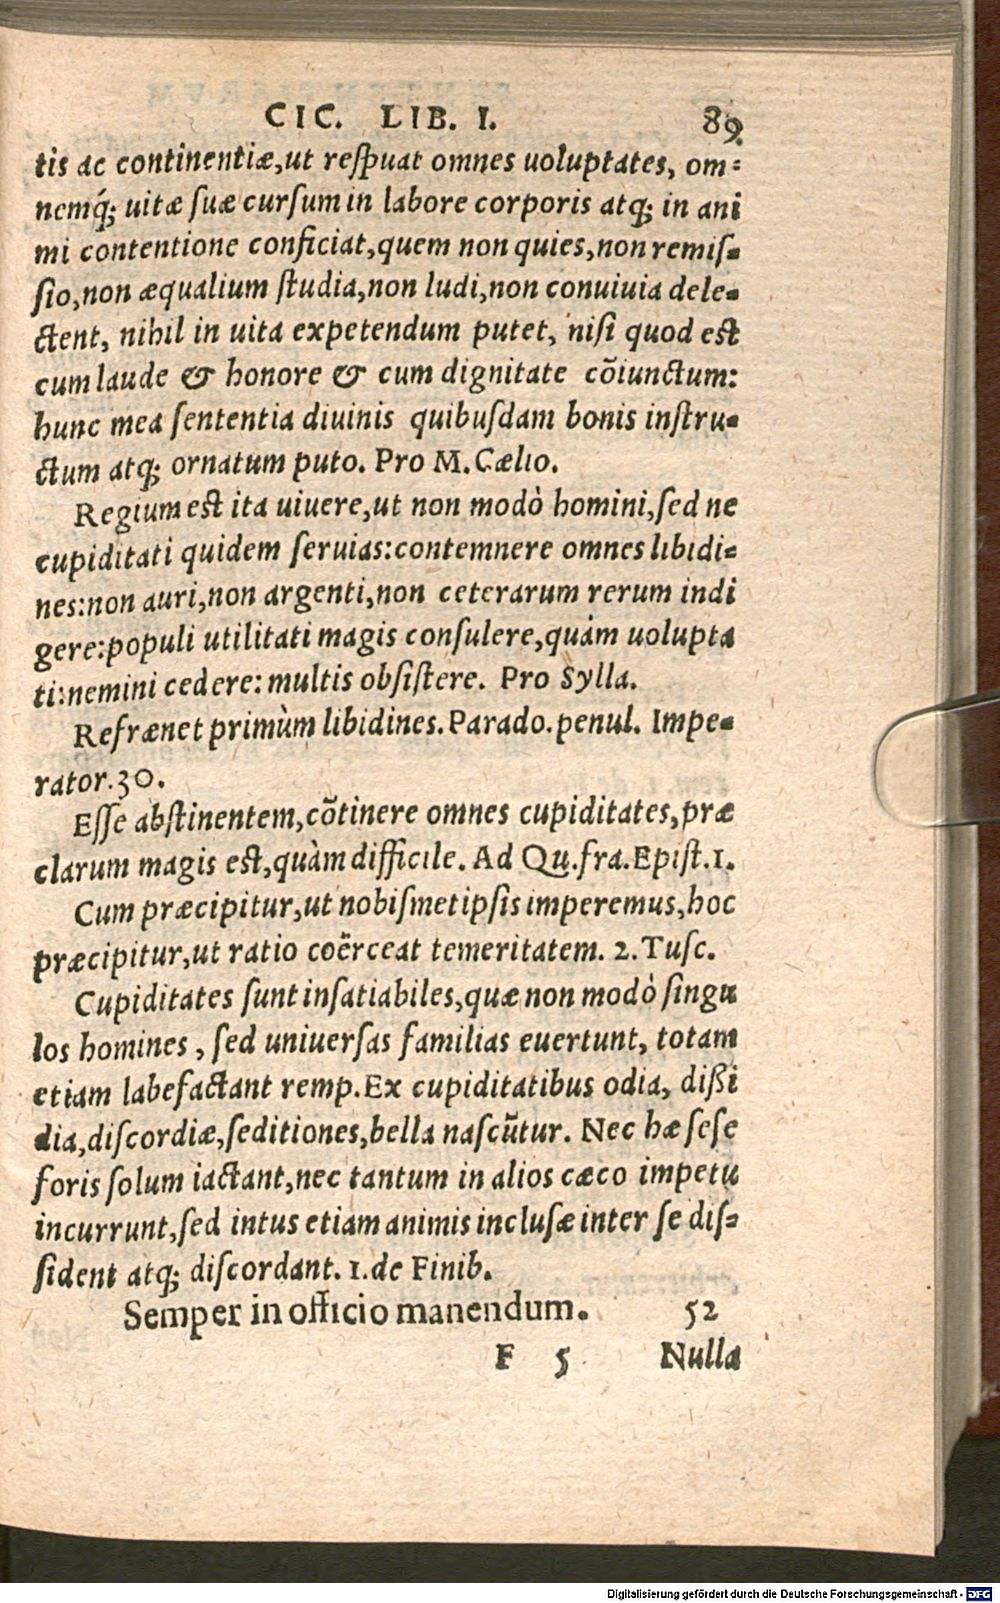 CIC. LIB. I. 89
tis ac continentiæ,ut reſpuat omnes uoluptates, om-
nemq́; uitæ ſuæ curſum in labore corporis atq; in ani
mi contentione conficiat,quem non quies,non remiſ-
ſio,non æqualium ſtudia,non ludi,non conuiuia dele-
ctent, nihil in uita expetendum putet, niſi quod eſt
cum laude & honore & cum dignitate cõiunctum:
hunc mea ſententia diuinis quibuſdam bonis inſtru-
ctum atq; ornatum puto. Pro M.Cælio.
Regium eſt ita uiuere,ut non modò homini,ſed ne
cupiditati quidem ſeruias:contemnere omnes libidi-
nes:non auri,non argenti,non ceterarum rerum indi
gere:populi utilitati magis conſulere,quàm uolupta
ti:nemini cedere:multis obſiſtere. Pro Sylla.
Refrænet primùm libidines.Parado.penul. Impe-
rator.30.
Eſſe abſtinentem,cõtinere omnes cupiditates,præ
clarum magis eſt,quàm difficile. Ad Qu.fra.Epiſt.1.
Cum præcipitur,ut nobiſmetipſis imperemus,hoc
præcipitur,ut ratio coërceat temeritatem. 2.Tuſc.
Cupiditates ſunt inſatiabiles,quæ non modò ſingu
los homines , ſed uniuerſas familias euertunt, totam
etiam labefactant remp.Ex cupiditatibus odia, dißi
dia,diſcordiæ,ſeditiones,bella naſcũtur. Nec hæ ſeſe
foris ſolum iactant,nec tantum in alios cæco impetu
incurrunt,ſed intus etiam animis incluſæ inter ſe diſ-
ſident atq; diſcordant. 1.de Finib.
Semper in officio manendum. 52
F 5 Nulla
Digitalisierung gefördert durch die Deutsche Forschungsgemeinschaft - DFG